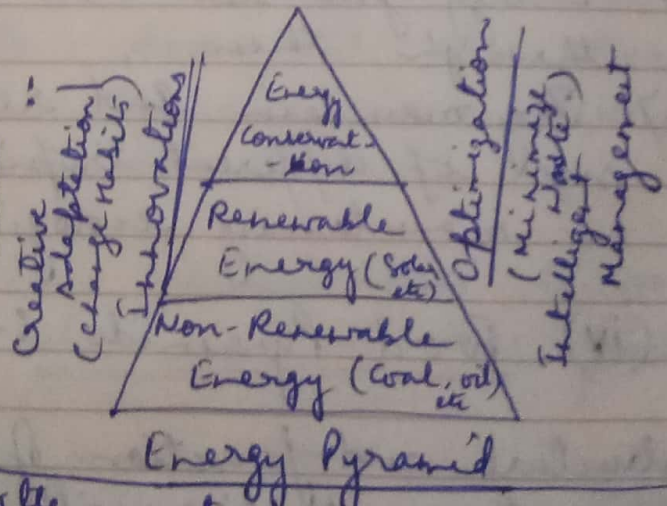 Creative
Adaptation
(Change Habits)
Innovations
Energy
Conservat-
-ion
Renewable
Energy (Solar
etc)
Non-Renewable
Energy (Coal, oil)
etc
Optimization
(Minimize
Waste)
Intelligent
Management
Energy Pyramid